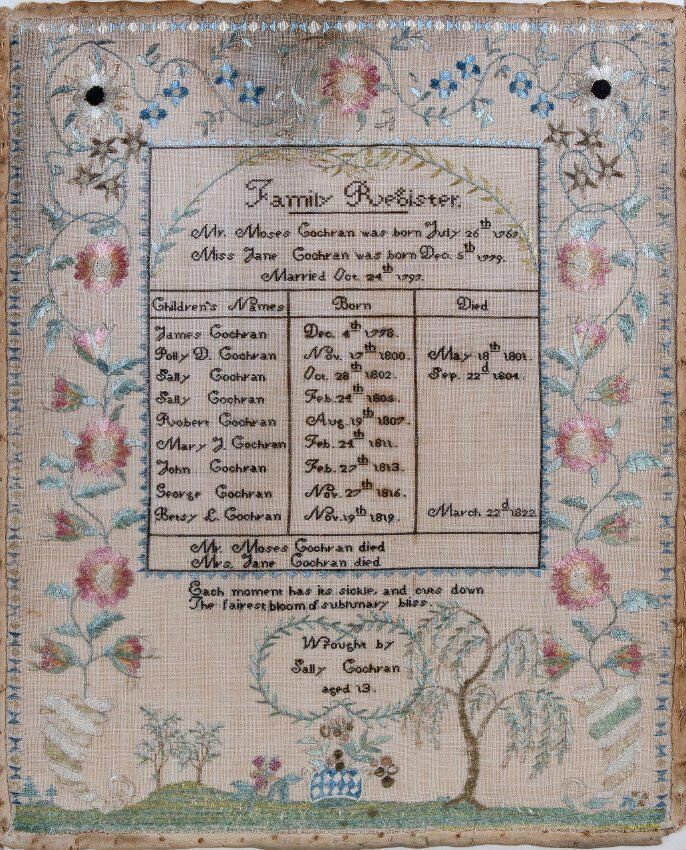 Family Register.
Mr. Moses Cochran was born July 26th 1769.
Miss Jane Cochran was born Dec. 5th 1779.
Married Oct. 24th 1797.
Children's Names Born Died
James Cochran Dec. 4th 1798.
Polly D. Cochran Nov. 17th 1800. May 18th 1801.
Sally Cochran Oct. 28th 1802. Sep. 22d 1804.
Sally Cochran Feb. 24th 1805.
Robert Cochran Aug. 19th 1807.
Mary J Cochran Feb. 21th 1811.
John Cochran Feb. 27th 1813.
George Cochran Nov. 27th 1816.
Betsy L. Cochran Nov. 19th 1819. March 22d 1822.
Mr. Moses Cochran died
Mrs. Jane Cochran died
Each moment has its sickle, and cuts down
The fairest bloom of sublunary bliss.
Wrought by
Sally Cochran
aged 13.